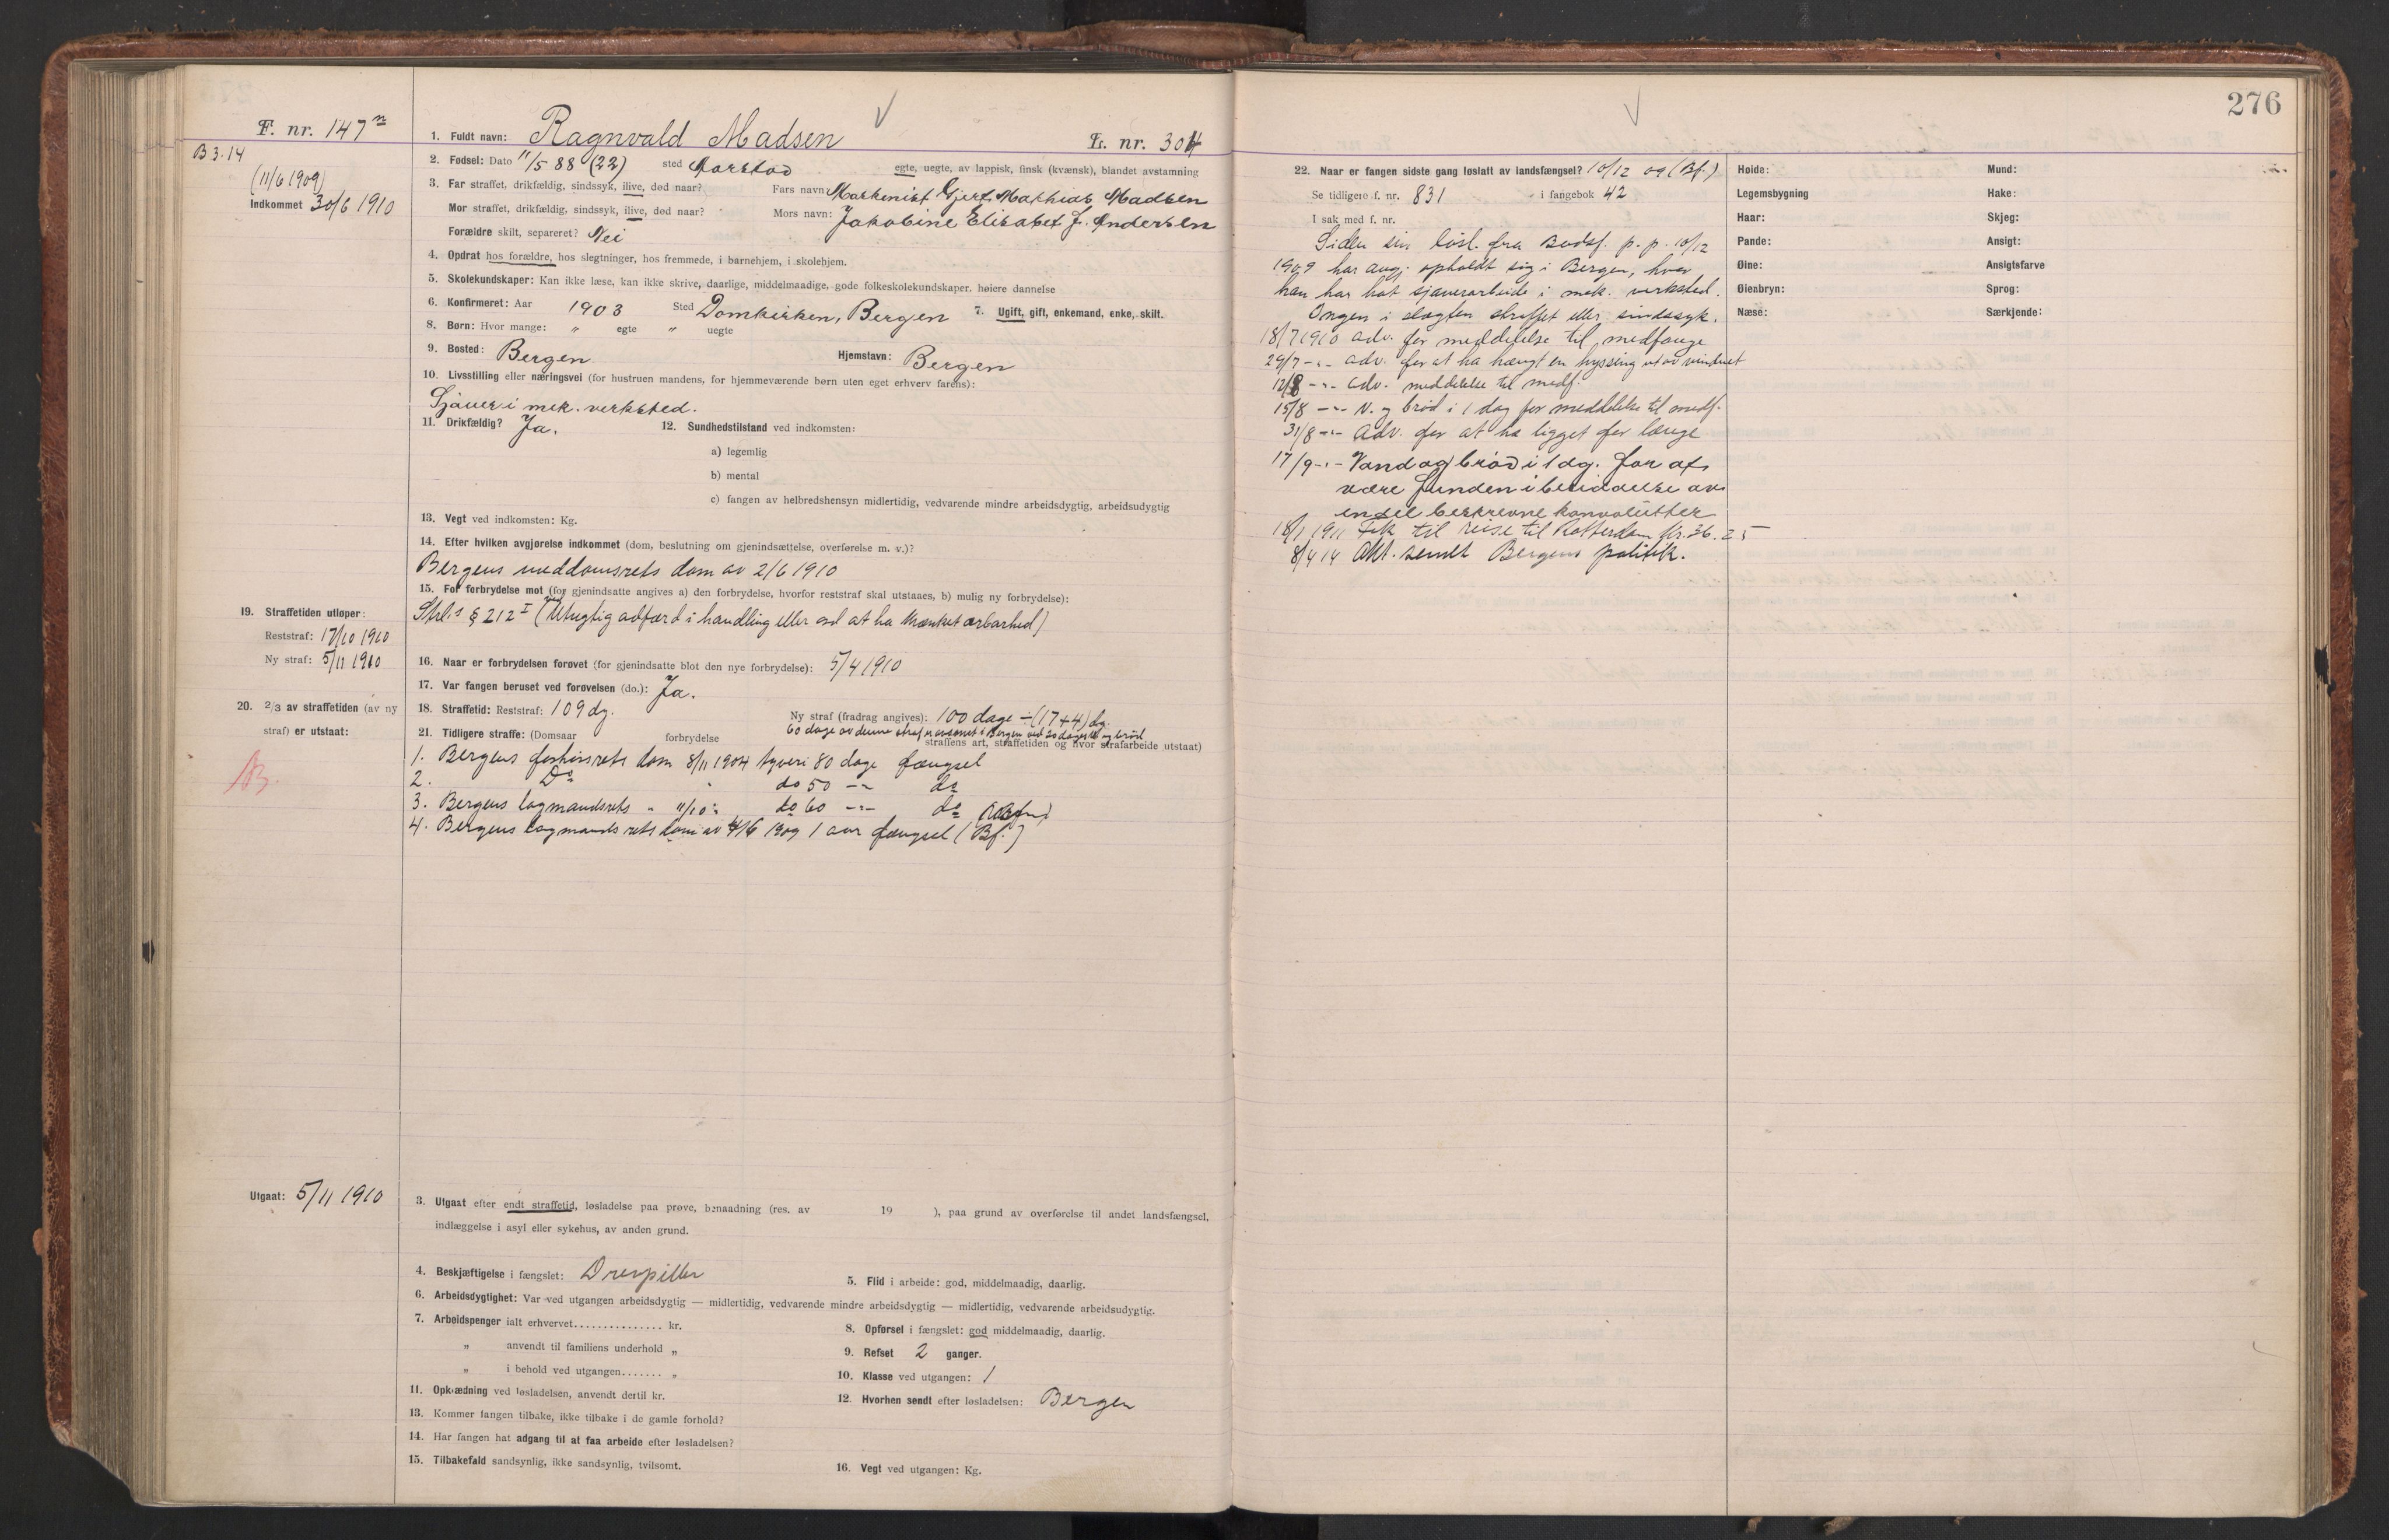 276
F. nr. 147
B 3.14
(11/6 1909)
Indkommet 30/6 1910
1. Fuldt navn: Ragnvald Madsen
L. nr. 304
2. Fødsel: Dato 11/5 88 (22) sted Aarstad egte, uegte, av lappisk, finsk (kvænsk), blandet avstamning
3. Far straffet, drikfældig, sindssyk, ilive, død naar? Fars navn: Maskenist Gjert Mathias Madsen
Mor straffet, drikfældig, sindssyk, ilive, død naar? Mors navn: Jakobine Elisabet J. Andersen
Forældre skilt, separeret? Nei
4. Opdrat hos forældre, hos slegtninger, hos fremmede, i barnehjem, i skolehjem.
5. Skolekundskaper: Kan ikke læse, kan ikke skrive, daarlige, middelmaadige, gode folkeskolekundskaper, høiere dannelse
6. Konfirmeret: Aar 1903 Sted Domkirken, Bergen 7. Ugift, gift, enkemand, enke, skilt.
8. Børn: Hvor mange: " egte " uegte
9. Bosted: Bergen Hjemstavn: Bergen
10. Livsstilling eller næringsvei (for hustruen mandens, for hjemmeværende børn uten eget erhverv farens):
Sjauer i mek. verksted.
11. Drikfældig? Ja. 12. Sundhedstilstand ved indkomsten:
a) legemlig
b) mental
c) fangen av helbredshensyn midlertidig, vedvarende mindre arbeidsdygtig, arbeidsudygtig
13. Vegt ved indkomsten: Kg.
14. Efter hvilken avgjørelse indkommet (dom, beslutning om gjenindsættelse, overførelse m. v.)?
Bergens meddomsrets dom av 2/6 1910
15. For forbrydelse mot (for gjenindsatte angives a) den forbrydelse, hvorfor reststraf skal utstaaes, b) mulig ny forbrydelse):
Strl.s § 212 I (ved utugtig adfærd i handling eller ord at ha krænket ærbarhed)
16. Naar er forbrydelsen forøvet (for gjenindsatte blot den nye forbrydelse): 5/4 1910
17. Var fangen beruset ved forøvelsen (do.): Ja.
18. Straffetid: Reststraf: 109 dg. Ny straf (fradrag angives): 100 dage ÷ (17+4) dg.
60 dage av denne straf er avsonet i Bergen ved 20 dages v. og brød
19. Straffetiden utløper:
Reststraf: 17/10 1910
Ny straf: 5/11 1910
20. 2/3 av straffetiden (av ny
straf) er utstaat:
B.
21. Tidligere straffe: (Domsaar forbrydelse straffens art, straffetiden og hvor strafarbeide utstaat)
1. Bergens forhørsrets dom 8/11 1904 tyveri 80 dage fængsel
2. Do " do 50 -"- do
3. Bergens lagmandsrets " 11/10 " do 60 -"- do
4. Bergens lagmandsrets dom av 4/6 1909 1 aar fængsel (Bf.)
Utgaat: 5/11 1910
3. Utgaat efter endt straffetid, løsladelse paa prøve, benaadning (res. av 19 ), paa grund av overførelse til andet landsfængsel,
indlæggelse i asyl eller sykehus, av anden grund.
4. Beskjæftigelse i fængslet: Drevpiller 5. Flid i arbeide: god, middelmaadig, daarlig.
6. Arbeidsdygtighet: Var ved utgangen arbeidsdygtig — midlertidig, vedvarende mindre arbeidsdygtig — midlertidig, vedvarende arbeidsudygtig.
7. Arbeidspenger ialt erhvervet............... kr. 8. Opførsel i fængslet: god middelmaadig, daarlig.
" anvendt til familiens underhold " 9. Refset 2 ganger.
" i behold ved utgangen....... " 10. Klasse ved utgangen: 1
11. Opklædning ved løsladelsen, anvendt dertil kr. 12. Hvorhen sendt efter løsladelsen: Bergen
13. Kommer fangen tilbake, ikke tilbake i de gamle forhold?
14. Har fangen hat adgang til at faa arbeide efter løsladelsen?
15. Tilbakefald sandsynlig, ikke sandsynlig, tvilsomt. 16. Vegt ved utgangen: Kg.
22. Naar er fangen sidste gang løslatt av landsfængsel? 10/12 09 (Bf.)
Se tidligere f. nr. 831 i fangebok 42
I sak med f. nr.
Siden sin løsl. fra Bodsf. p. p. 10/12
1909 har angj. opholdt sig i Bergen, hvor
han har hat sjauerarbeide i mek. verksted.
Ingen i slegten straffet eller sindssyk.
18/7 1910 adv. for meddelelse til medfange
29/7 -"- adv. for at ha hængt en hyssing ut av vinduet
12/8 -"- adv. meddelelse til medf.
15/8 -"- V. og brød i 1 dag for meddelelse til medf.
31/8 -"- Adv. for at ha ligget for længe
17/9 -"- Vand og brød i 1 dg. for at
være funden i besiddelse av
endel beskrevne konvolutter
18/1 1911 Fik til reise til Rotterdam kr. 36.25
8/4 14 Akt. sendt Bergens politik.
Høide: Mund:
Legemsbygning Hake:
Haar: Skjeg:
Pande: Ansigt:
Øine: Ansigtsfarve
Øienbryn: Sprog:
Næse: Særkjende: